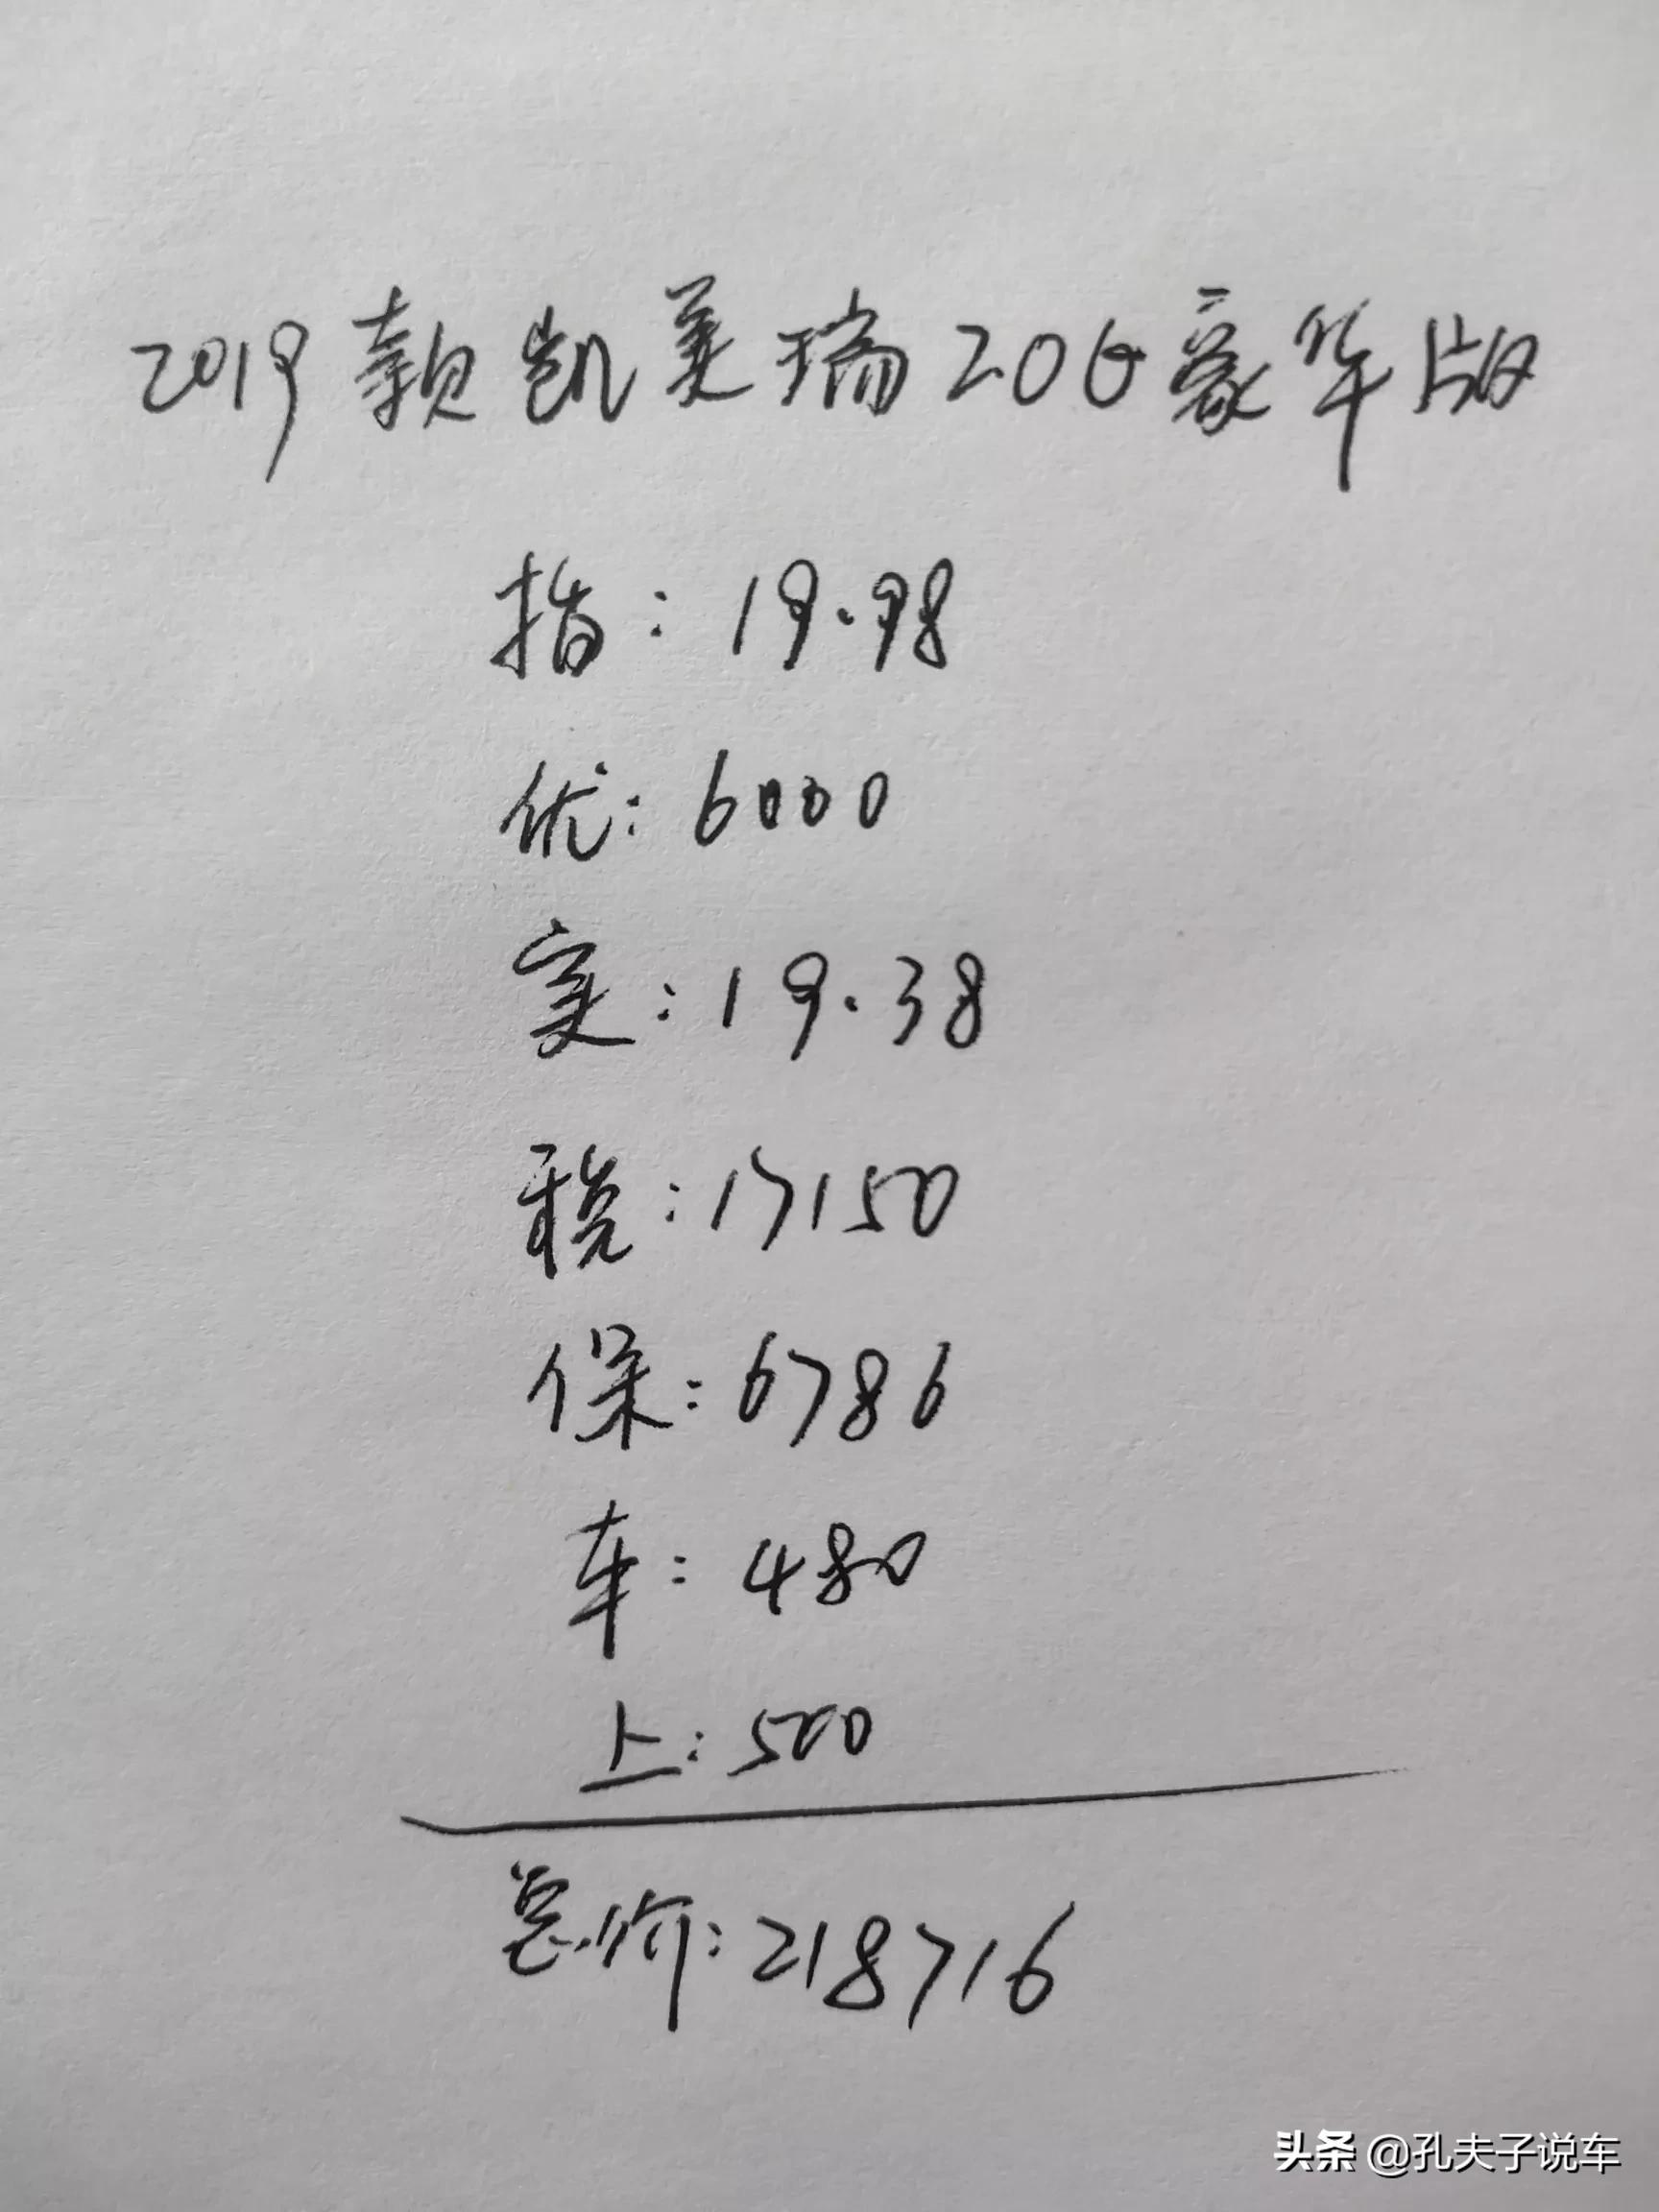 2019款凯美瑞2.0G豪华版
指:19.98
优:6000
实:19.38
税:17150
保:6786
车:480
上:500
总价:218716
头条 @孔夫子说车